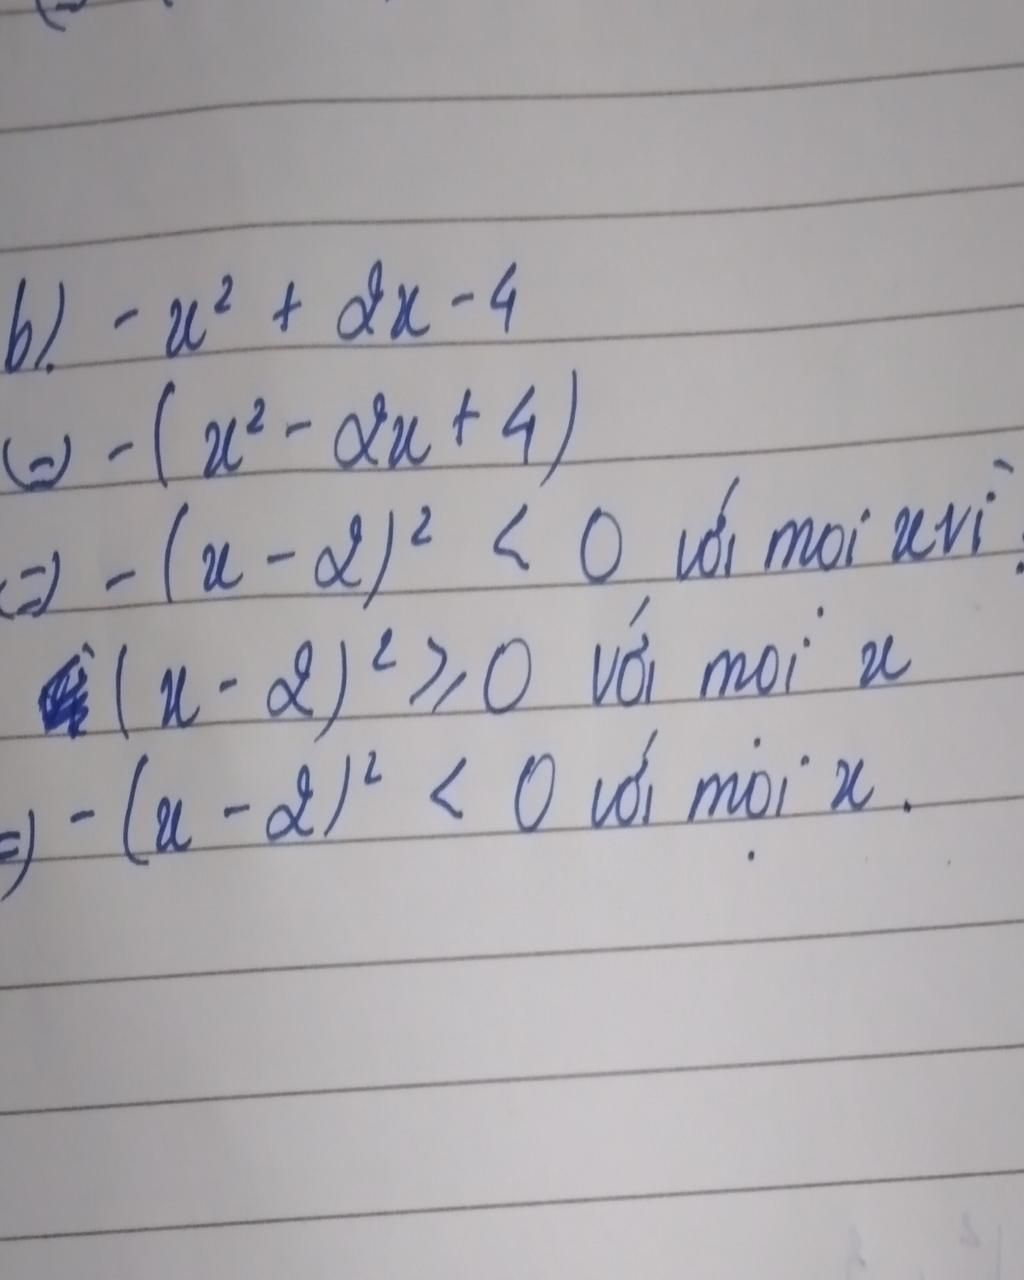 b). - x² + 2x - 4
(=) - (x² - 2x + 4)
(=) - (x - 2)² < 0 với moi x vì :
(x - 2)² ⩾ 0 với moi x
=) - (x - 2)² < 0 với mọi x.